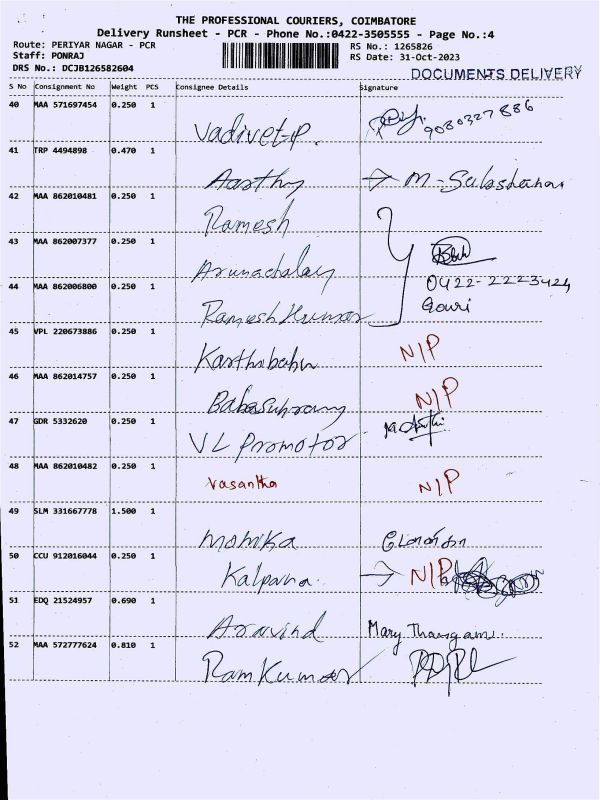 THE PROFESSIONAL COURIERS, COIMBATORE
Delivery Runsheet - PCR - Phone No.:0422-3505555 - Page No.:4
Route: PERIYAR NAGAR - PCR RS No.: 1265826
Staff: PONRAJ RS Date: 31-Oct-2023
DRS No.: DCJB126582604 DOCUMENTS DELIVERY
S No Consignment No Weight PCS Consignee Details Signature
40 MAA 571697454 0.250 1
Vadivel-P. 9080327886
41 TRP 4494898 0.470 1
Aarthy → M-
42 MAA 862010481 0.250 1
Ramesh
43 MAA 862007377 0.250 1
Arunachalam
0422-2223424
44 MAA 862006800 0.250 1
Ramesh Kumar Gouri
45 VPL 220673886 0.250 1
Karthibabu N/P
46 MAA 862014757 0.250 1
N/P
47 GDR 5332620 0.250 1
VL Promotor
48 MAA 862010482 0.250 1
Vasantha N/P
49 SLM 331667778 1.500 1
Monika மோனிகா
50 CCU 912016044 0.250 1
Kalpana. → N/P
51 EDQ 21524957 0.690 1
Aravind Mary Thangam.
52 MAA 572777624 0.810 1
RamKumar